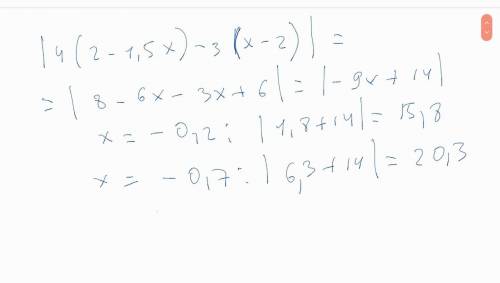 |4(2-1,5x)-3(x-2)|=
=|8-6x-3x+6|=|-9x+14|
x=-0,2: |1,8+14|=15,8
x=-0,7: |6,3+14|=20,3